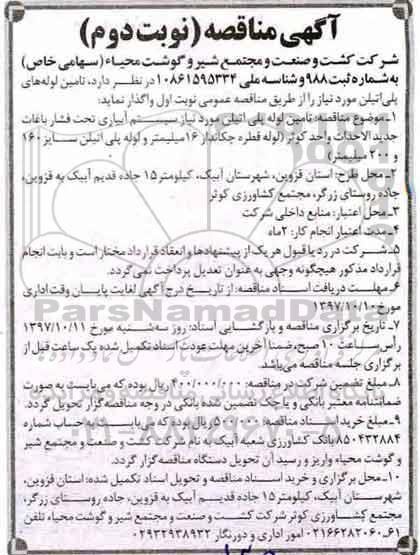 آگهی مناقصه (نوبت دوم)
شرکت کشت و صنعت و مجتمع شیر و گوشت محیاء (سهامی خاص)
به شماره ثبت ۹۸۸ و شناسه ملی ۱۰۸۶۱۵۹۵۳۳۴ در نظر دارد، تامین لوله‌های
پلی‌اتیلن مورد نیاز را از طریق مناقصه عمومی نوبت اول واگذار نماید:
۱ـ موضوع مناقصه: تامین لوله پلی اتیلن مورد نیاز سیستم آبیاری تحت فشار باغات
جدید الاحداث واحد کوثر (لوله قطره چکاندار ۱۶ میلیمتر و لوله پلی اتیلن سایز ۱۶۰
و ۲۰۰ میلیمتر)
۲ـ محل طرح: استان قزوین، شهرستان آبیک، کیلومتر ۱۵ جاده قدیم آبیک به قزوین،
جاده روستای زرگر، مجتمع کشاورزی کوثر
۳ـ محل اعتبار: منابع داخلی شرکت
۴ـ مدت اعتبار انجام کار: ۲ ماه
۵ـ شرکت در رد یا قبول هر یک از پیشنهادها و انعقاد قرارداد مختار است و بابت انجام
قرارداد مذکور هیچگونه وجهی به عنوان تعدیل پرداخت نمی‌گردد.
۶ـ مهلت دریافت اسناد مناقصه: از تاریخ درج آگهی لغایت پایان وقت اداری
مورخ ۱۳۹۷/۱۰/۱۰
۷ـ تاریخ برگزاری مناقصه و بازگشایی اسناد: روز سه‌شنبه مورخ ۱۳۹۷/۱۰/۱۱
رأس ساعت ۱۰ صبح، ضمنا آخرین مهلت عودت اسناد تکمیل شده یک ساعت قبل از
برگزاری جلسه مناقصه می‌باشد.
۸ـ مبلغ تضمین شرکت در مناقصه: ۴۰۰/۰۰۰/۰۰۰ ریال بوده که می‌بایست به صورت
ضمانتنامه معتبر بانکی و یا چک تضمین شده بانکی در وجه مناقصه‌گزار تحویل گردد.
۹ـ مبلغ خرید اسناد مناقصه: ۵۰۰/۰۰۰ ریال بوده که می‌بایست به حساب شماره
۸۵۰۴۳۲۸۸۴ بانک کشاورزی شعبه آبیک به نام شرکت کشت و صنعت و مجتمع شیر
و گوشت محیاء واریز و رسید آن تحویل دستگاه مناقصه‌گزار گردد.
۱۰ـ محل برگزاری و خرید اسناد مناقصه و تحویل اسناد تکمیل شده: استان قزوین،
شهرستان آبیک، کیلومتر ۱۵ جاده قدیم آبیک به قزوین، جاده روستای زرگر،
مجتمع کشاورزی کوثر شرکت کشت و صنعت و مجتمع شیر و گوشت محیاء تلفن
۶۱ـ۰۲۱۶۶۲۸۲۰۶۰ امور اداری و دورنگار ۰۲۹۳۲۹۳۸۹۳۲
ParsNamadData